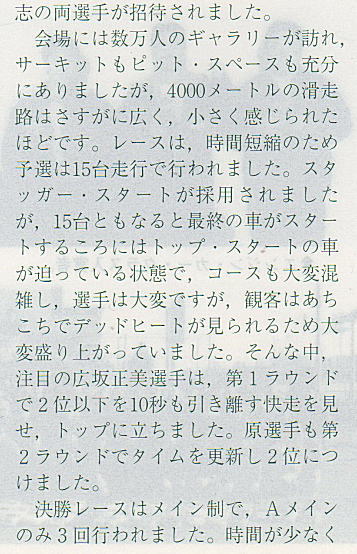 志の両選手が招待されました。
　会場には数万人のギャラリーが訪れ，
サーキットもピット・スペースも充分
にありましたが，4000メートルの滑走
路はさすがに広く，小さく感じられた
ほどです。レースは，時間短縮のため
予選は15台走行で行われました。スタ
ッガー・スタートが採用されました
が，15台ともなると最終の車がスター
トするころにはトップ・スタートの車
が迫っている状態で，コースも大変混
雑し，選手は大変ですが，観客はあち
こちでデッドヒートが見られるため大
変盛り上がっていました。そんな中，
注目の広坂正美選手は，第１ラウンド
で２位以下を10秒も引き離す快走を見
せ，トップに立ちました。原選手も第
２ラウンドでタイムを更新し２位につ
けました。
　決勝レースはメイン制で，Ａメイン
のみ３回行われました。時間が少なく